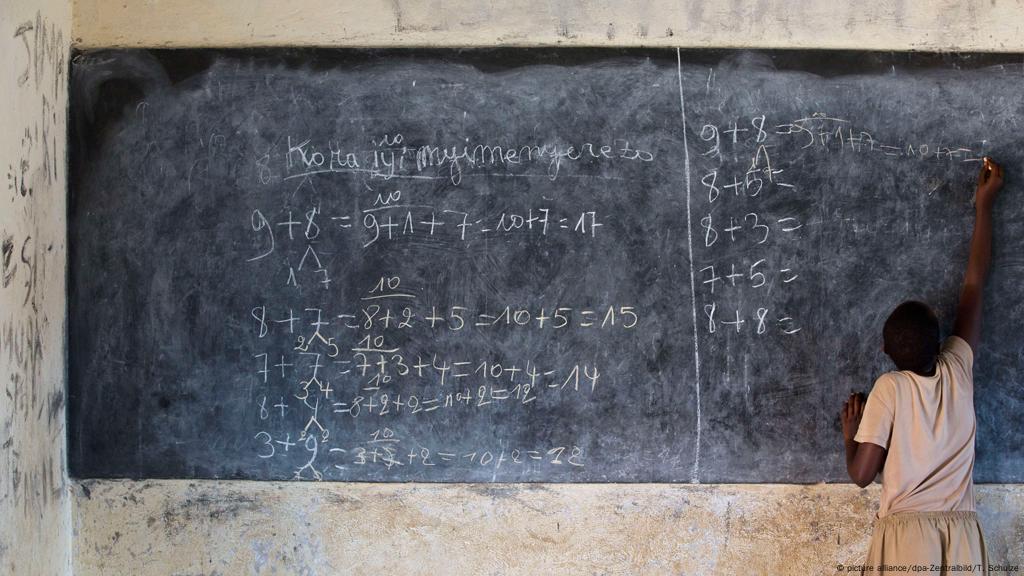 10
Kora iyi myimenyerezo
10
9+8 = 9+1+7=10+7=17
1 7
10
8+7=8+2+5=10+5=15
2 5 10
7+7=7+3+4=10+4=14
3 4 10
8+4=8+2+2=10+2=12
2 2 10
3+9 = +2=10+2=12
9+8=9+1+7=10+7=
1 7
8+5=
8+3=
7+5=
8+8=
© picture alliance/dpa-Zentralbild/T. Schulze